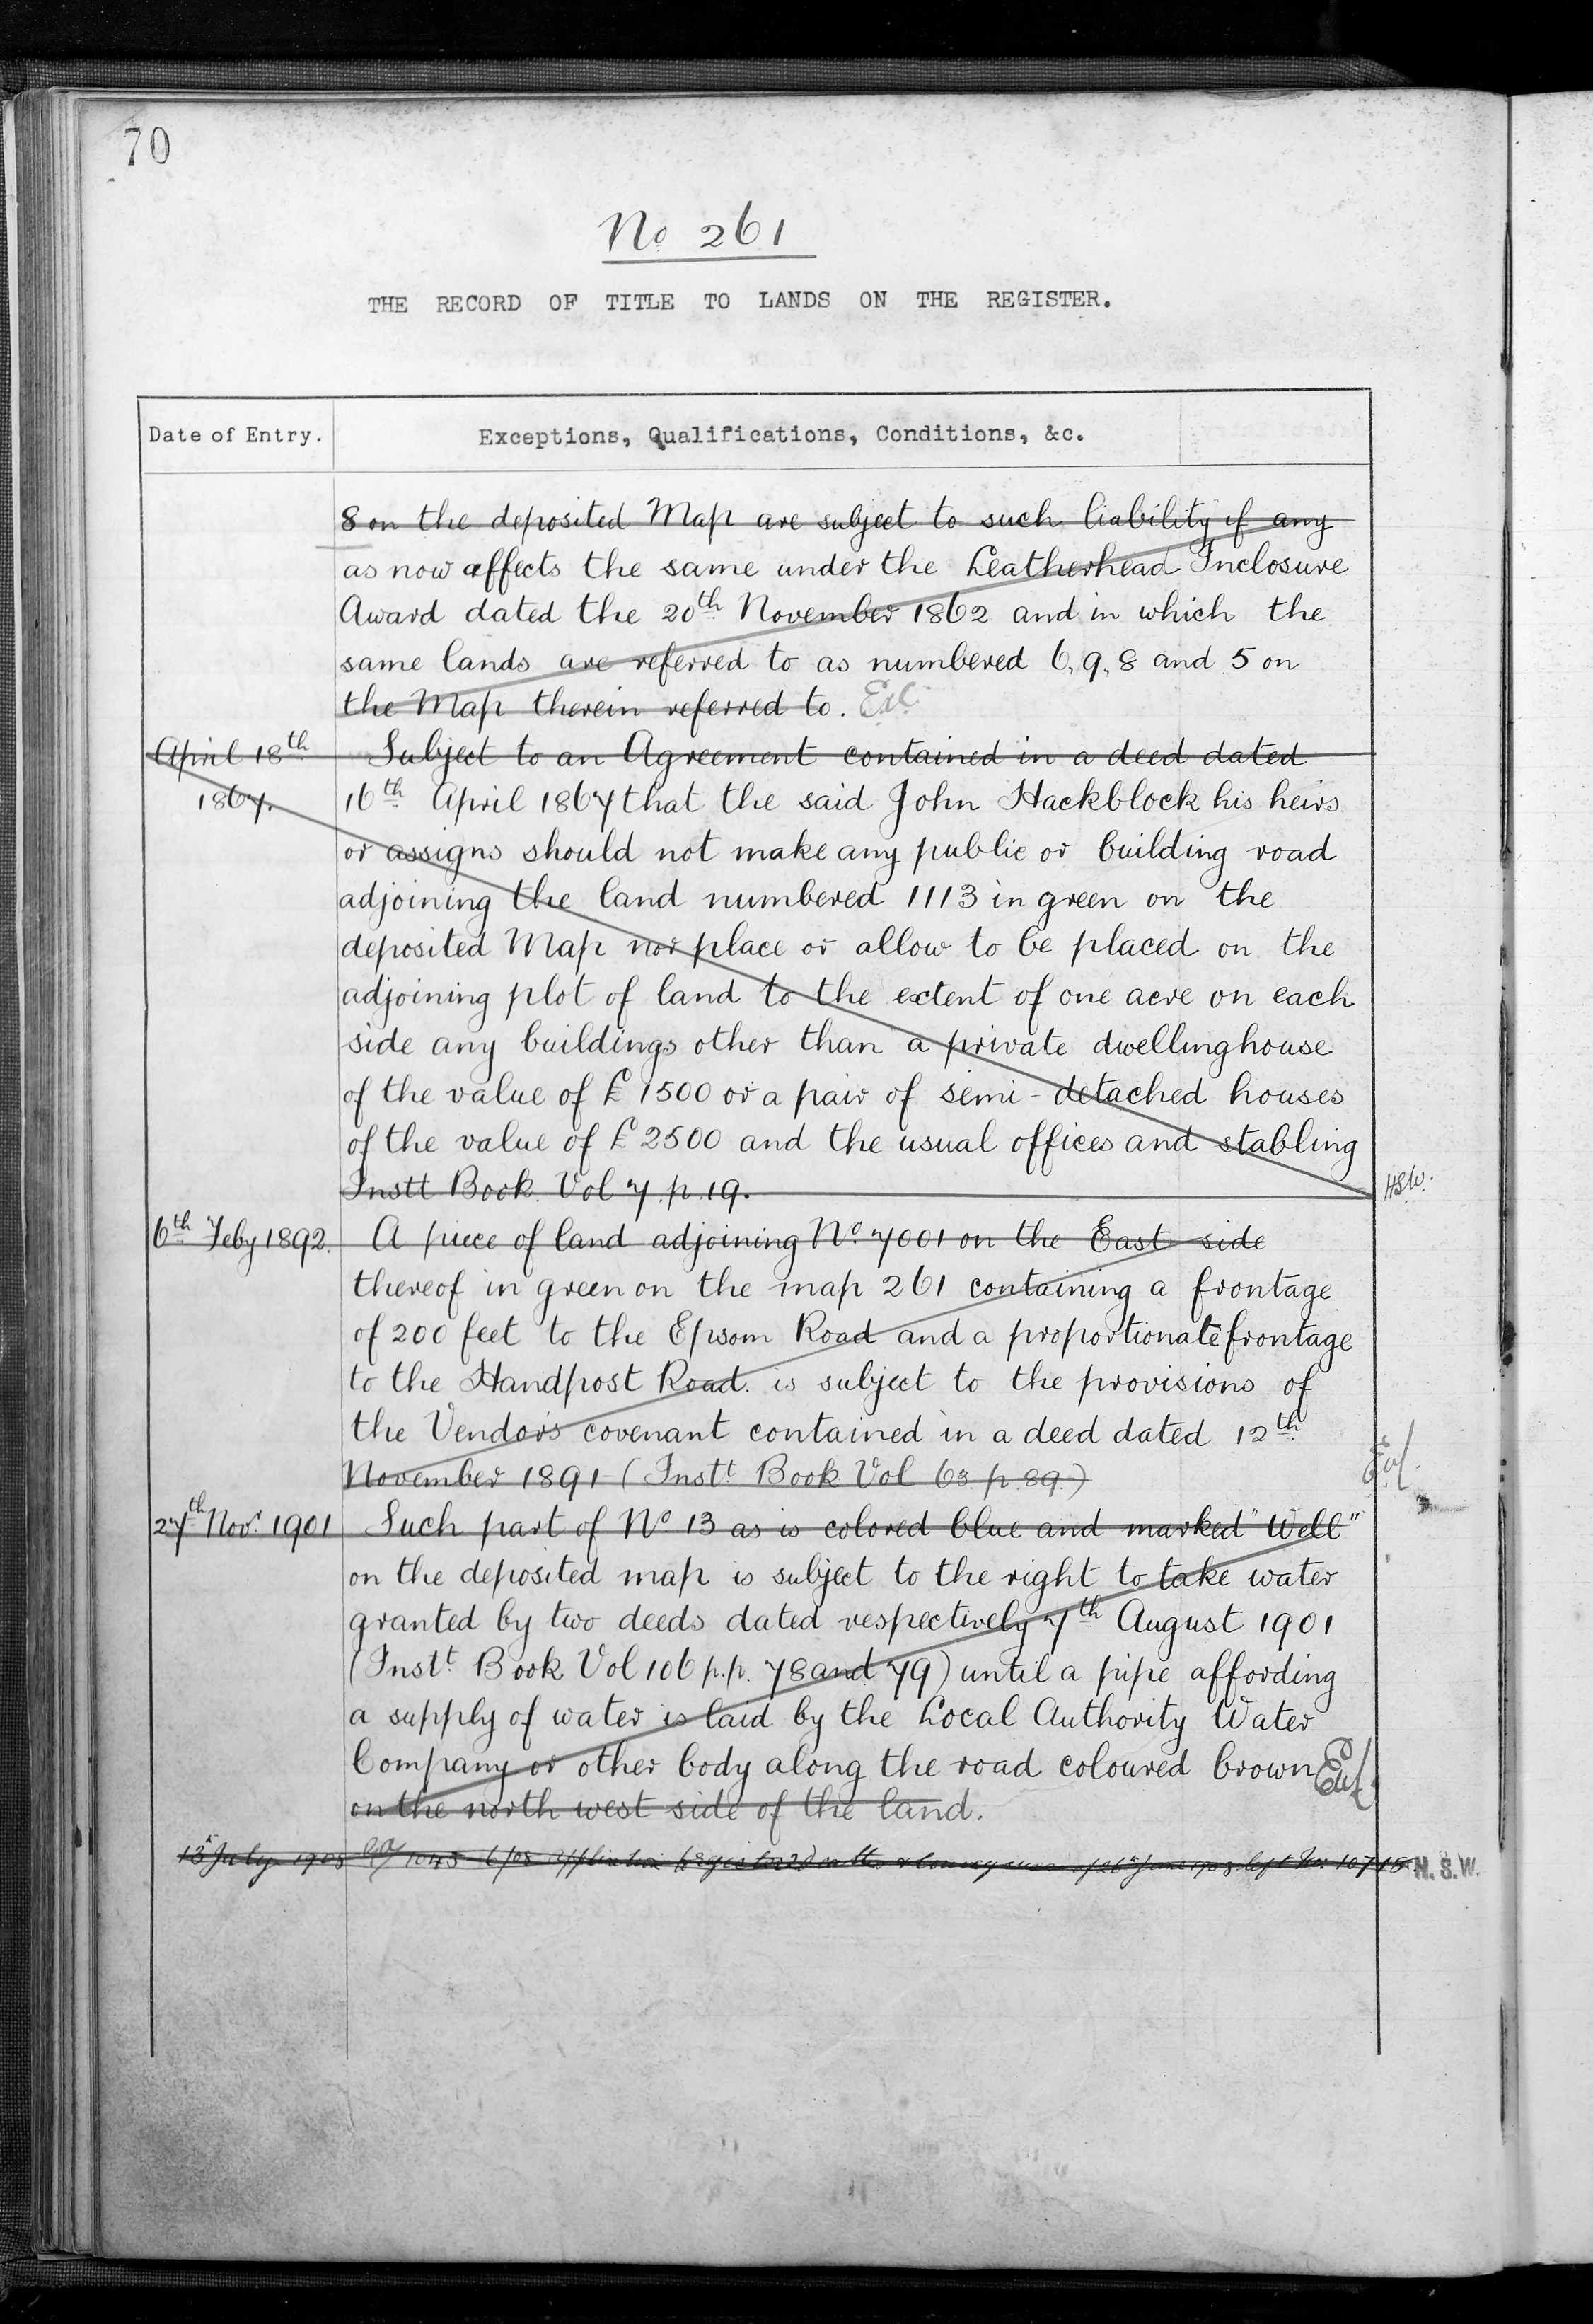 70
No 261
THE RECORD OF TITLE TO LANDS ON THE REGISTER.
Date of Entry. Exceptions, Qualifications, Conditions, &c.
8 on the deposited Map are subject to such liability if any
as now affects the same under the Leatherhead Inclosure
Award dated the 20th November 1862 and in which the
same lands are referred to as numbered 6, 9, 8 and 5 on
the Map therein referred to.
April 18th Subject to an Agreement contained in a deed dated
1867. 16th April 1867 that the said John Hackblock his heirs
or assigns should not make any public or building road
adjoining the land numbered 1113 in green on the
deposited Map nor place or allow to be placed on the
adjoining plot of land to the extent of one acre on each
side any buildings other than a private dwellinghouse
of the value of £1500 or a pair of semi-detached houses
of the value of £2500 and the usual offices and stabling
Instt Book Vol 7 p. 19. HSW.
6th Feby 1892. A piece of land adjoining No. 7001 on the East side
thereof in green on the map 261 containing a frontage
of 200 feet to the Epsom Road and a proportionate frontage
to the Handpost Road. is subject to the provisions of
the Vendors covenant contained in a deed dated 12th
November 1891 (Instt Book Vol 63 p. 89.)
27th Novr. 1901 Such part of No 13 as is colored blue and marked "Well"
on the deposited map is subject to the right to take water
granted by two deeds dated respectively 7th August 1901
(Instt Book Vol 106 p.p. 78 and 79) until a pipe affording
a supply of water is laid by the Local Authority Water
Company or other body along the road coloured brown
on the north west side of the land.
13th July 1905 of 26th June 1905 left 10718 H.S.W.